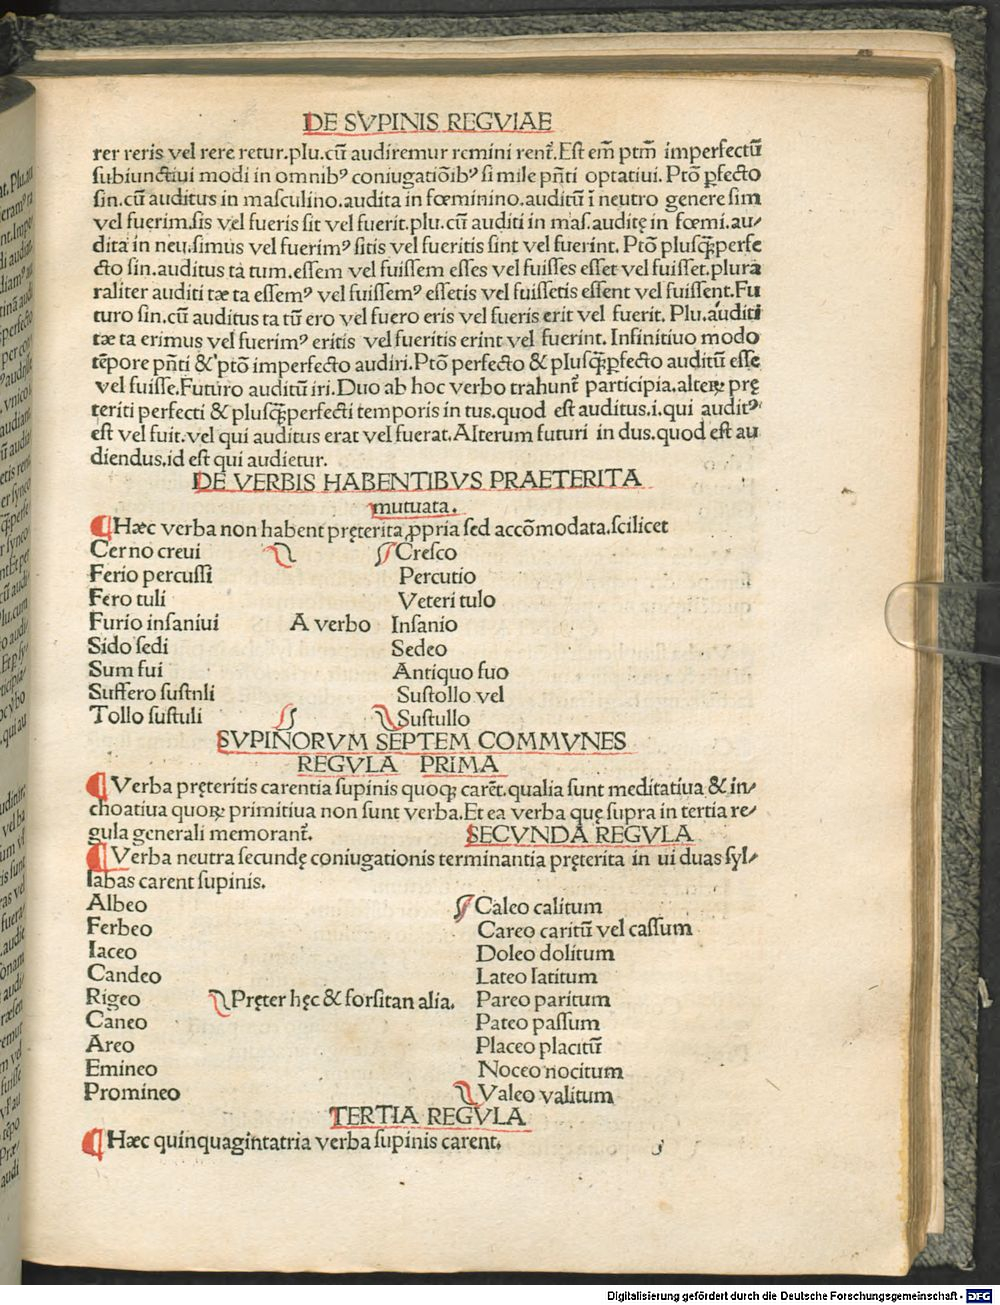 DE SVPINIS REGVIAE
rer reris vel rere retur.plu.cū audiremur remini renť.Est em̄ ptm̄ imperfectū
subiunctiui modi in omnibꝰ coniugatiōibꝰ si mile pñti optatiui. Ptō ꝑfecto
sin.cū auditus in masculino.audita in fœminino.auditū ī neutro genere sim
vel fuerim.sis vel fueris sit vel fuerit.plu.cū auditi in mas.auditę in fœmi.au⸗
dita in neu.simus vel fuerimꝰ sitis vel fueritis sint vel fuerint. Ptō plusq̄ꝑperfe
cto sin.auditus ta tum.essem vel fuissem esses vel fuisses esset vel fuisset.plura
raliter auditi tæ ta essemꝰ vel fuissemꝰ essetis vel fuissetis essent vel fuissent.Fu
turo sin.cū auditus ta tū ero vel fuero eris vel fueris erit vel fuerit. Plu.auditi
tæ ta erimus vel fuerimꝰ eritis vel fueritis erint vel fuerint. Infinitiuo modo
tēpore pñti & ptō imperfecto audiri.Ptō perfecto & plusq̄ꝑfecto auditū esse
vel fuisse.Futuro auditū iri.Duo ab hoc verbo trahunť participia.alteꝝ prę
teriti perfecti & plusq̄ꝑperfecti temporis in tus.quod est auditus.i.qui auditꝰ
est vel fuit.vel qui auditus erat vel fuerat.Alterum futuri in dus.quod est au
diendus.id est qui audietur.
DE VERBIS HABENTIBVS PRAETERITA
mutuata.
Hæc verba non habent pręterita ꝓpria sed accōmodata.scilicet
Cerno creui Cresco
Ferio percussi Percutio
Fero tuli Veteri tulo
Furio insaniui A verbo Insanio
Sido sedi Sedeo
Sum fui Antiquo fuo
Suffero sustnli Sustollo vel
Tollo sustuli Sustullo
SVPINORVM SEPTEM COMMVNES
REGVLA PRIMA
Verba pręteritis carentia supinis quoqꝫ careň.qualia sunt meditatiua & in⸗
choatiua quoꝝ primitiua non sunt verba.Et ea verba quę supra in tertia re⸗
gula generali memoranť. SECVNDA REGVLA
Verba neutra secundę coniugationis terminantia pręterita in ui duas syl⸗
labas carent supinis.
Albeo Caleo calitum
Ferbeo Careo caritū vel cassum
Iaceo Doleo dolitum
Candeo Lateo latitum
Rigeo Pręter hęc & forsitan alia. Pareo paritum
Caneo Pateo passum
Areo Placeo placitū
Emineo Noceo nocitum
Promineo Valeo valitum
TERTIA REGVLA
Hæc quinquagintatria verba supinis carent.
Digitalisierung gefördert durch die Deutsche Forschungsgemeinschaft - DFG